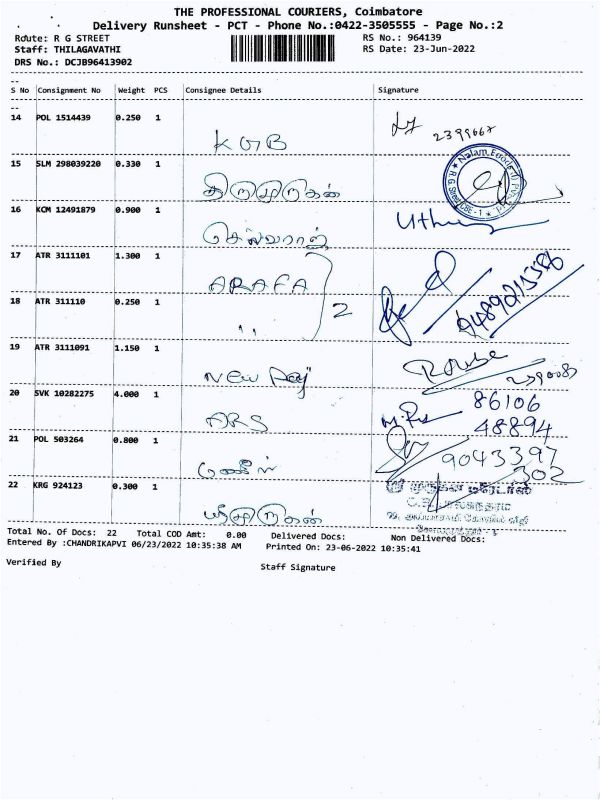 THE PROFESSIONAL COURIERS, Coimbatore
Delivery Runsheet - PCT - Phone No.:0422-3505555 - Page No.:2
Route: R G STREET
RS No.: 964139
Staff: THILAGAVATHI
RS Date: 23-Jun-2022
DRS No.: DCJB96413902
S No Consignment No Weight PCS Consignee Details Signature
14 POL 1514439 0.250 1
KGB 2399667
15 SLM 298039220 0.330 1
திருமுருகன்
16 KCM 12491879 0.900 1
செல்வராஜ்
17 ATR 3111101 1.300 1
ARAFA
18 ATR 311110 0.250 1
2
19 ATR 3111091 1.150 1
New
20 SVK 10282275 4.000 1
86106
ARS 48894
21 POL 503264 0.800 1
9043397
302
22 KRG 924123 0.300 1
ஸ்ரீ முருகன் டிரேடர்ஸ்
ஸ்ரீமுருகன்
Total No. Of Docs: 22 Total COD Amt: 0.00 Delivered Docs: Non Delivered Docs:
Entered By :CHANDRIKAPVI 06/23/2022 10:35:38 AM Printed On: 23-06-2022 10:35:41
Verified By Staff Signature